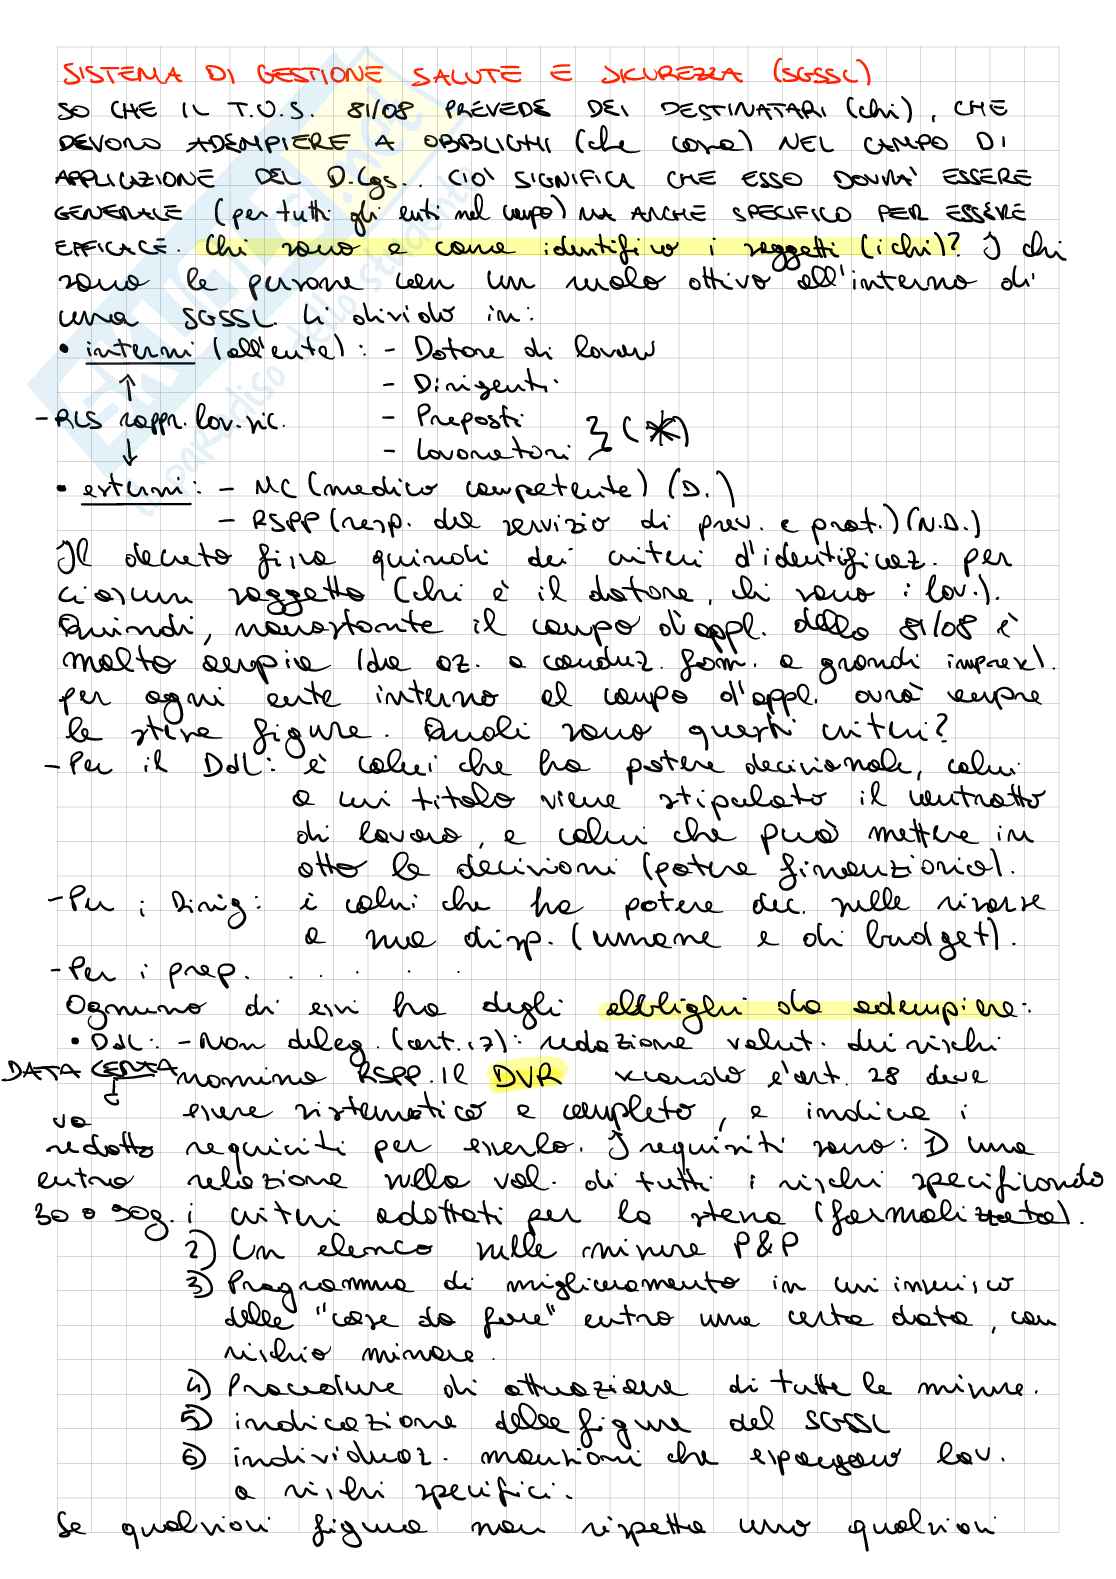 SISTEMA DI GESTIONE SALUTE E SICUREZZA (SGSSL)
SO CHE IL T.U.S. 81/08 PREVEDE DEI DESTINATARI (chi), CHE
DEVONO ADEMPIERE A OBBLIGHI (che cosa) NEL CAMPO DI
APPLICAZIONE DEL D.Lgs.. CIÒ SIGNIFICA CHE ESSO DOVRÀ ESSERE
GENERALE (per tutti gli enti nel campo) MA ANCHE SPECIFICO PER ESSERE
EFFICACE. Chi sono e come identifico i soggetti (i chi)? I chi
sono le persone con un ruolo attivo all'interno di
una SGSSL. Li divido in:
• interni (all'ente): - Datore di lavoro
- Dirigenti
- RLS rappr. lav. sic. - Preposti
- Lavoratori } (*)
• esterni: - MC (medico competente) (D.)
- RSPP (resp. del servizio di prev. e prot.) (N.D.)
Il decreto fissa quindi dei criteri d'identificaz. per
ciascun soggetto (chi è il datore, chi sono i lav.).
Quindi, nonostante il campo di appl. dello 81/08 è
molto ampio (da az. a conduz. fam. a grandi imprese).
per ogni ente interno al campo d'appl. avrò sempre
le stesse figure. Quali sono questi criteri?
- Per il DdL: è colui che ha potere decisionale, colui
a cui titolo viene stipulato il contratto
di lavoro, e colui che può mettere in
atto le decisioni (potere finanziario).
- Per i Dirig: è colui che ha potere dec. sulle risorse
a sua disp. (umane e di budget).
- Per i prep. . . . . .
Ognuno di essi ha degli obblighi da adempiere:
• DdL: - Non deleg. (art. 17): redazione valut. dei rischi
DATA CERTA nomina RSPP. Il DVR secondo l'art. 28 deve
va essere sistematico e completo, e indica i
redatto requisiti per esserlo. I requisiti sono: 1) una
entro relazione sulla val. di tutti i rischi specificando
30 o 90g. i criteri adottati per la stessa (formalizzata).
2) Un elenco sulle misure P&P
3) Programma di miglioramento in cui inserisco
delle "cose da fare" entro una certa data, con
rischio minore.
4) Procedure di attuazione di tutte le misure.
5) indicazione delle figure del SGSSL
6) individuaz. mansioni che espongono lav.
a rischi specifici.
Se qualsiasi figura non rispetta uno qualsiasi